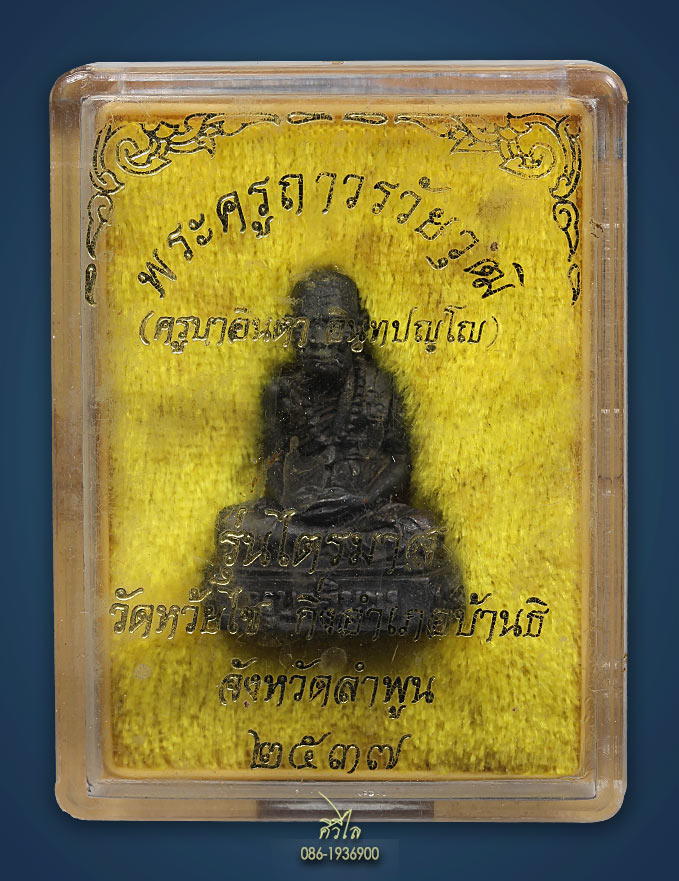 พระครูถาวรวัยวุฒิ
(ครูบาอินตา อินฺทปญฺโญ)
รุ่นไตรมาส
วัดห้วยไซ กิ่งอำเภอบ้านธิ
จังหวัดลำพูน
๒๕๓๗
ศิวิไล
086-1936900